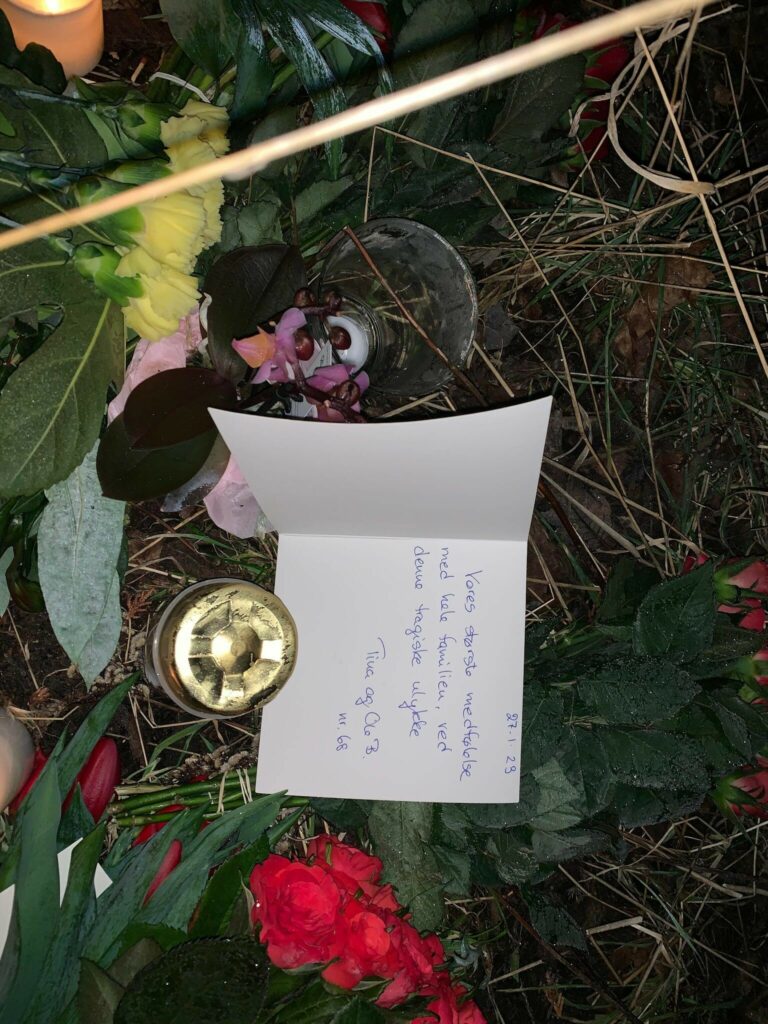 27.1.23
Vores største medfølelse
med hele familien, ved
denne tragiske ulykke
Tina og Ole B.
nr. 68